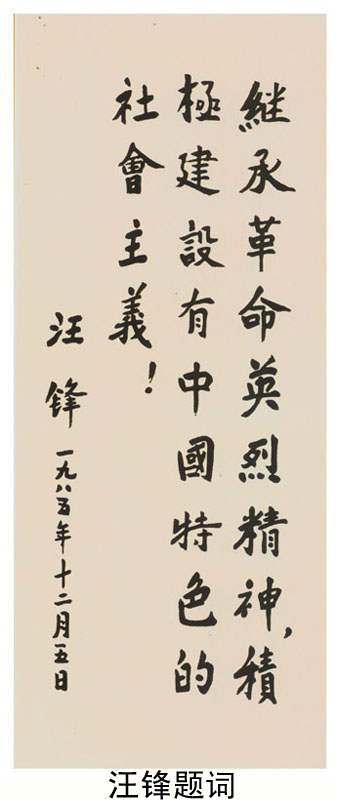 繼承革命英烈精神，積
極建設有中國特色的
社會主義！
汪锋 一九八五年十二月五日
汪锋题词